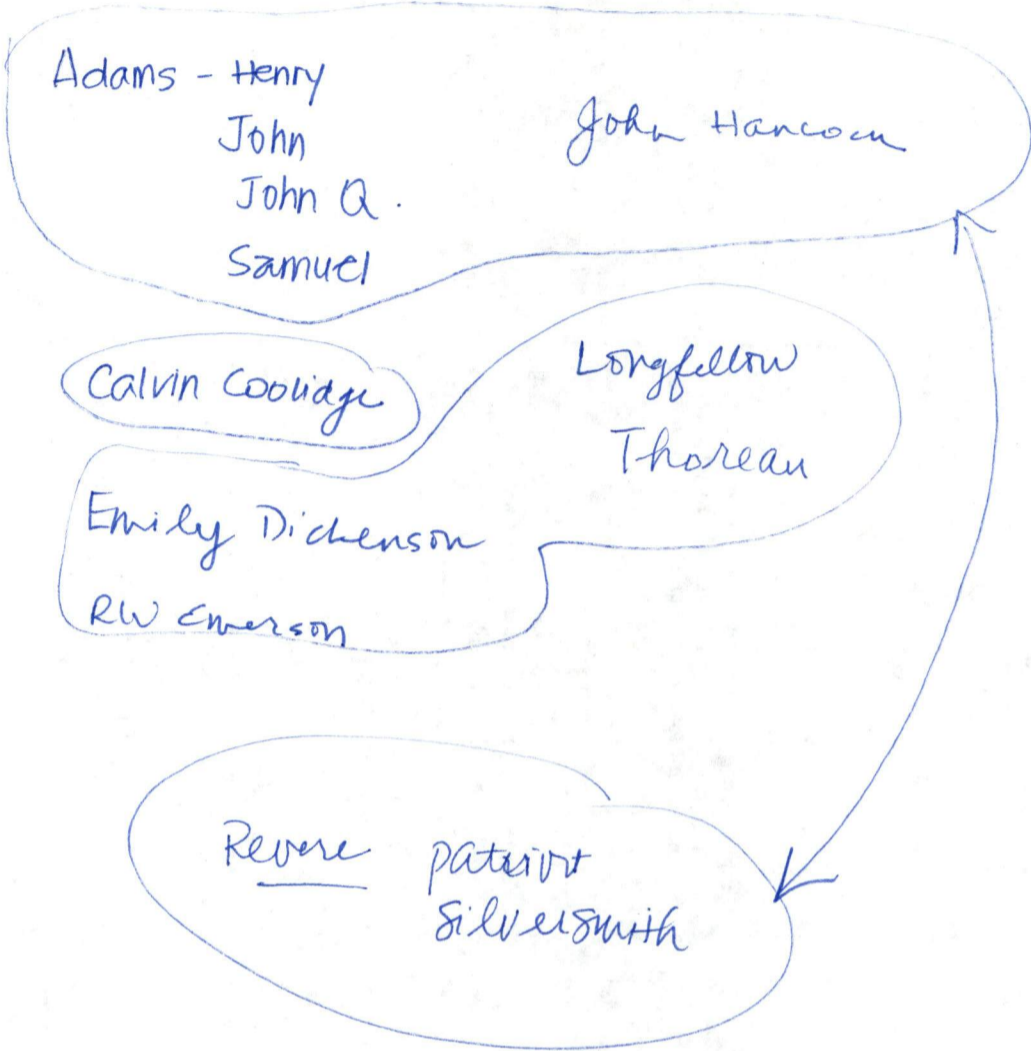 Adams - Henry
John
John Q.
Samuel
John Hancock
Calvin Coolidge
Longfellow
Thoreau
Emily Dickenson
RW Emerson
Revere patriot
silversmith